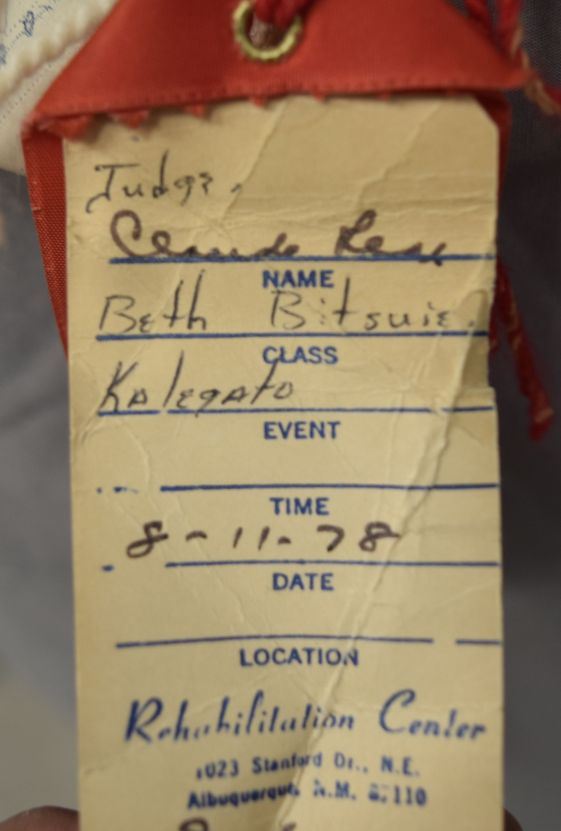 Judge.
Claude
NAME
Beth Bitsuie.
CLASS
Kalegato
EVENT
TIME
8-11-78
DATE
LOCATION
Rehabilitation Center
1023 Stanford Dr., N.E.
Albuquerque, N.M. 87110